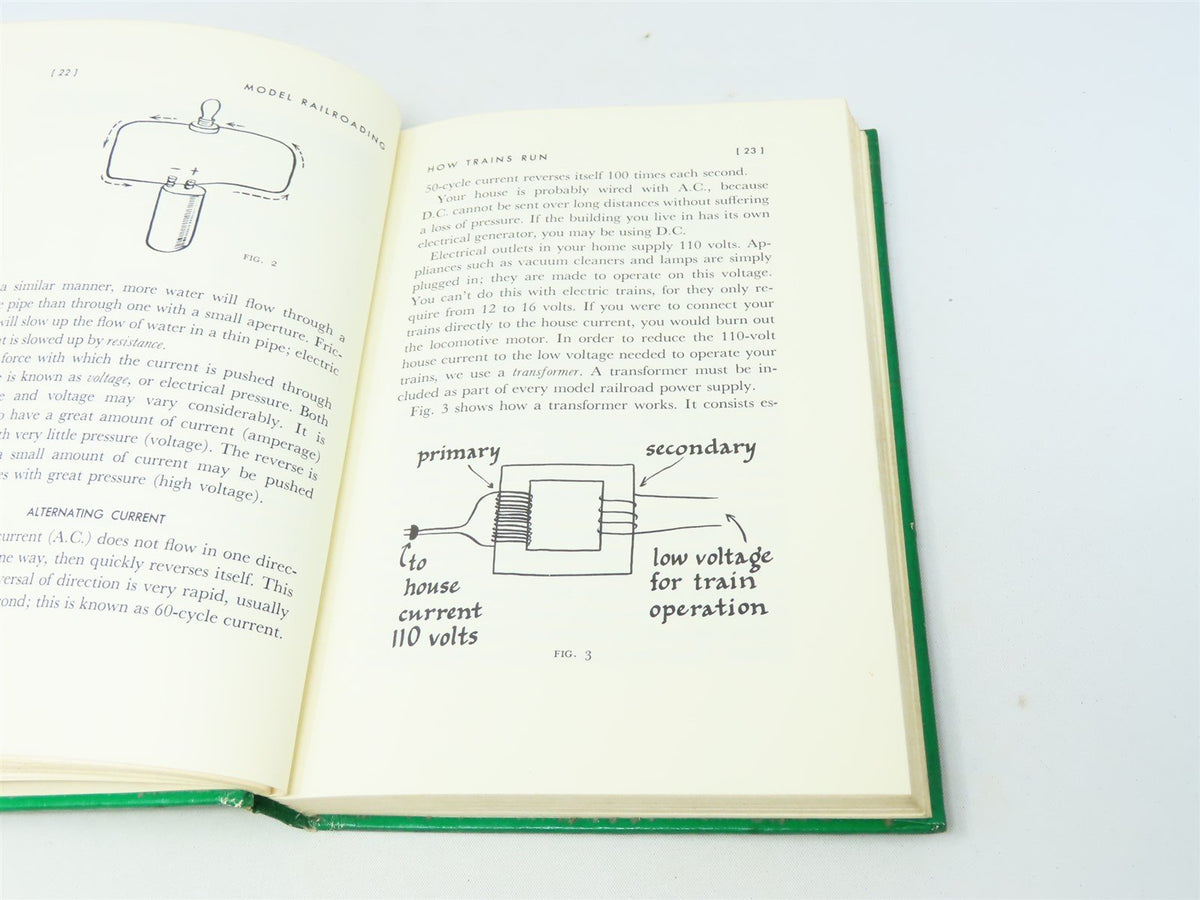 [ 22 ]
MODEL RAILROADING
− +
FIG. 2
a similar manner, more water will flow through a
pipe than through one with a small aperture. Fric-
will slow up the flow of water in a thin pipe; electric
is slowed up by resistance.
force with which the current is pushed through
is known as voltage, or electrical pressure. Both
and voltage may vary considerably. It is
to have a great amount of current (amperage)
very little pressure (voltage). The reverse is
a small amount of current may be pushed
with great pressure (high voltage).
ALTERNATING CURRENT
current (A.C.) does not flow in one direc-
way, then quickly reverses itself. This
of direction is very rapid, usually
this is known as 60-cycle current.
HOW TRAINS RUN
[ 23 ]
50-cycle current reverses itself 100 times each second.
Your house is probably wired with A.C., because
D.C. cannot be sent over long distances without suffering
a loss of pressure. If the building you live in has its own
electrical generator, you may be using D.C.
Electrical outlets in your home supply 110 volts. Ap-
pliances such as vacuum cleaners and lamps are simply
plugged in; they are made to operate on this voltage.
You can't do this with electric trains, for they only re-
quire from 12 to 16 volts. If you were to connect your
trains directly to the house current, you would burn out
the locomotive motor. In order to reduce the 110-volt
house current to the low voltage needed to operate your
trains, we use a transformer. A transformer must be in-
cluded as part of every model railroad power supply.
Fig. 3 shows how a transformer works. It consists es-
primary
secondary
to
house
current
110 volts
low voltage
for train
operation
FIG. 3